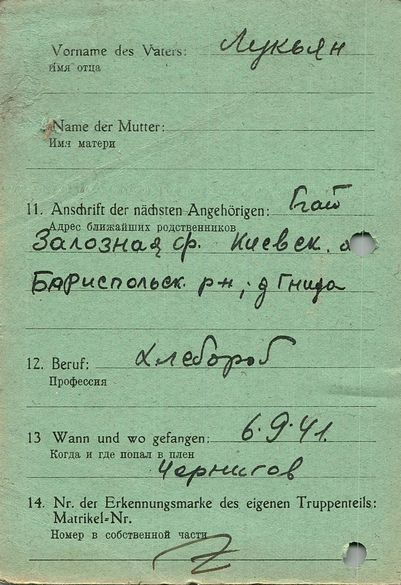 Vorname des Vaters: Лукьян
Имя отца
Name der Mutter:
Имя матери
11. Anschrift der nächsten Angehörigen:
Адрес ближайших родственников
Залозная ф. Киевск. о
Бариспольск. рн, д Гнида
12. Beruf: Хлебороб
Профессия
13 Wann und wo gefangen: 6.9.41.
Когда и где попал в плен
Чернигов
14. Nr. der Erkennungsmarke des eigenen Truppenteils:
Matrikel=Nr.
Номер в собственной части